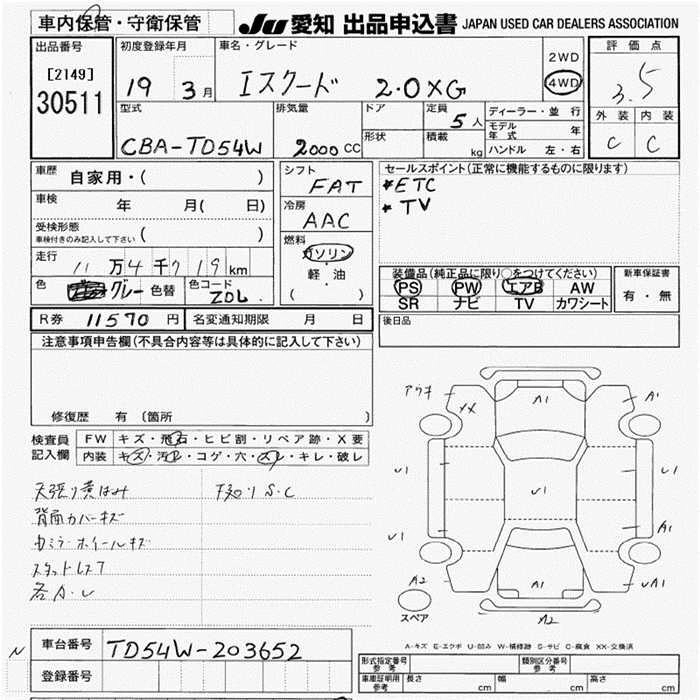 車内保管・守衛保管
JU 愛知 出品申込書 JAPAN USED CAR DEALERS ASSOCIATION
出品番号
[2149]
30511
初度登録年月
19 年 3 月
車名・グレード
エスクード 2.0XG
2WD
4WD
評価点
3.5
外装 内装
C C
型式
CBA-TD54W
排気量
2000 CC
ドア
形状
定員
5 人
積載
kg
ディーラー・並行
モデル年式 年
ハンドル 左・右
車歴
自家用・( )
車検 年 月( 日)
受検形態
車検付きのみ記入して下さい ( )
走行
11 万 4 千 719 km
色 グレー 色替 色コード ZDL
シフト
FAT
冷房
AAC
燃料
ガソリン
軽・油
( )
セールスポイント(正常に機能するものに限ります)
*ETC
*TV
装備品(純正品に限り○をつけてください)
PS PW エアB AW
SR ナビ TV カワシート
新車保証書
有・無
後日品
R券 11570 円 名変通知期限 月 日
注意事項申告欄(不具合内容等は具体的に記入して下さい)
修復歴 有 〔箇所 〕
検査員記入欄
FW キズ・飛石・ヒビ割・リペア跡・X要
内装 キズ・汚レ・コゲ・穴・スレ・キレ・破レ
天張り黄ばみ 下廻りS・C
背面カバーキズ
カミラ・ホイールキズ
スタットレス7
各A・U
アウキ
XX
A1
A'
U1
U1
U1
U1
A1
A2
A1
UA1
スペア
A2
A-キズ E-エクボ U-凹み W-補修跡 S-サビ C-腐食 XX-交換済
N
車台番号 TD54W-203652
登録番号
形式指定番号 参考
類別区分番号 参考
車庫証明用 参考 長さ cm 幅 cm 高さ cm